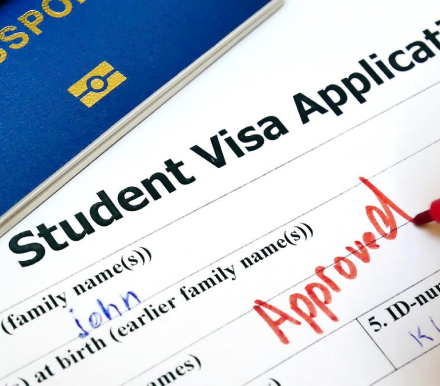 SSPO
Student Visa Applicat
(family name(s))
john
at birth (earlier family name(s))
Approved
ames)
5. ID-nu
K